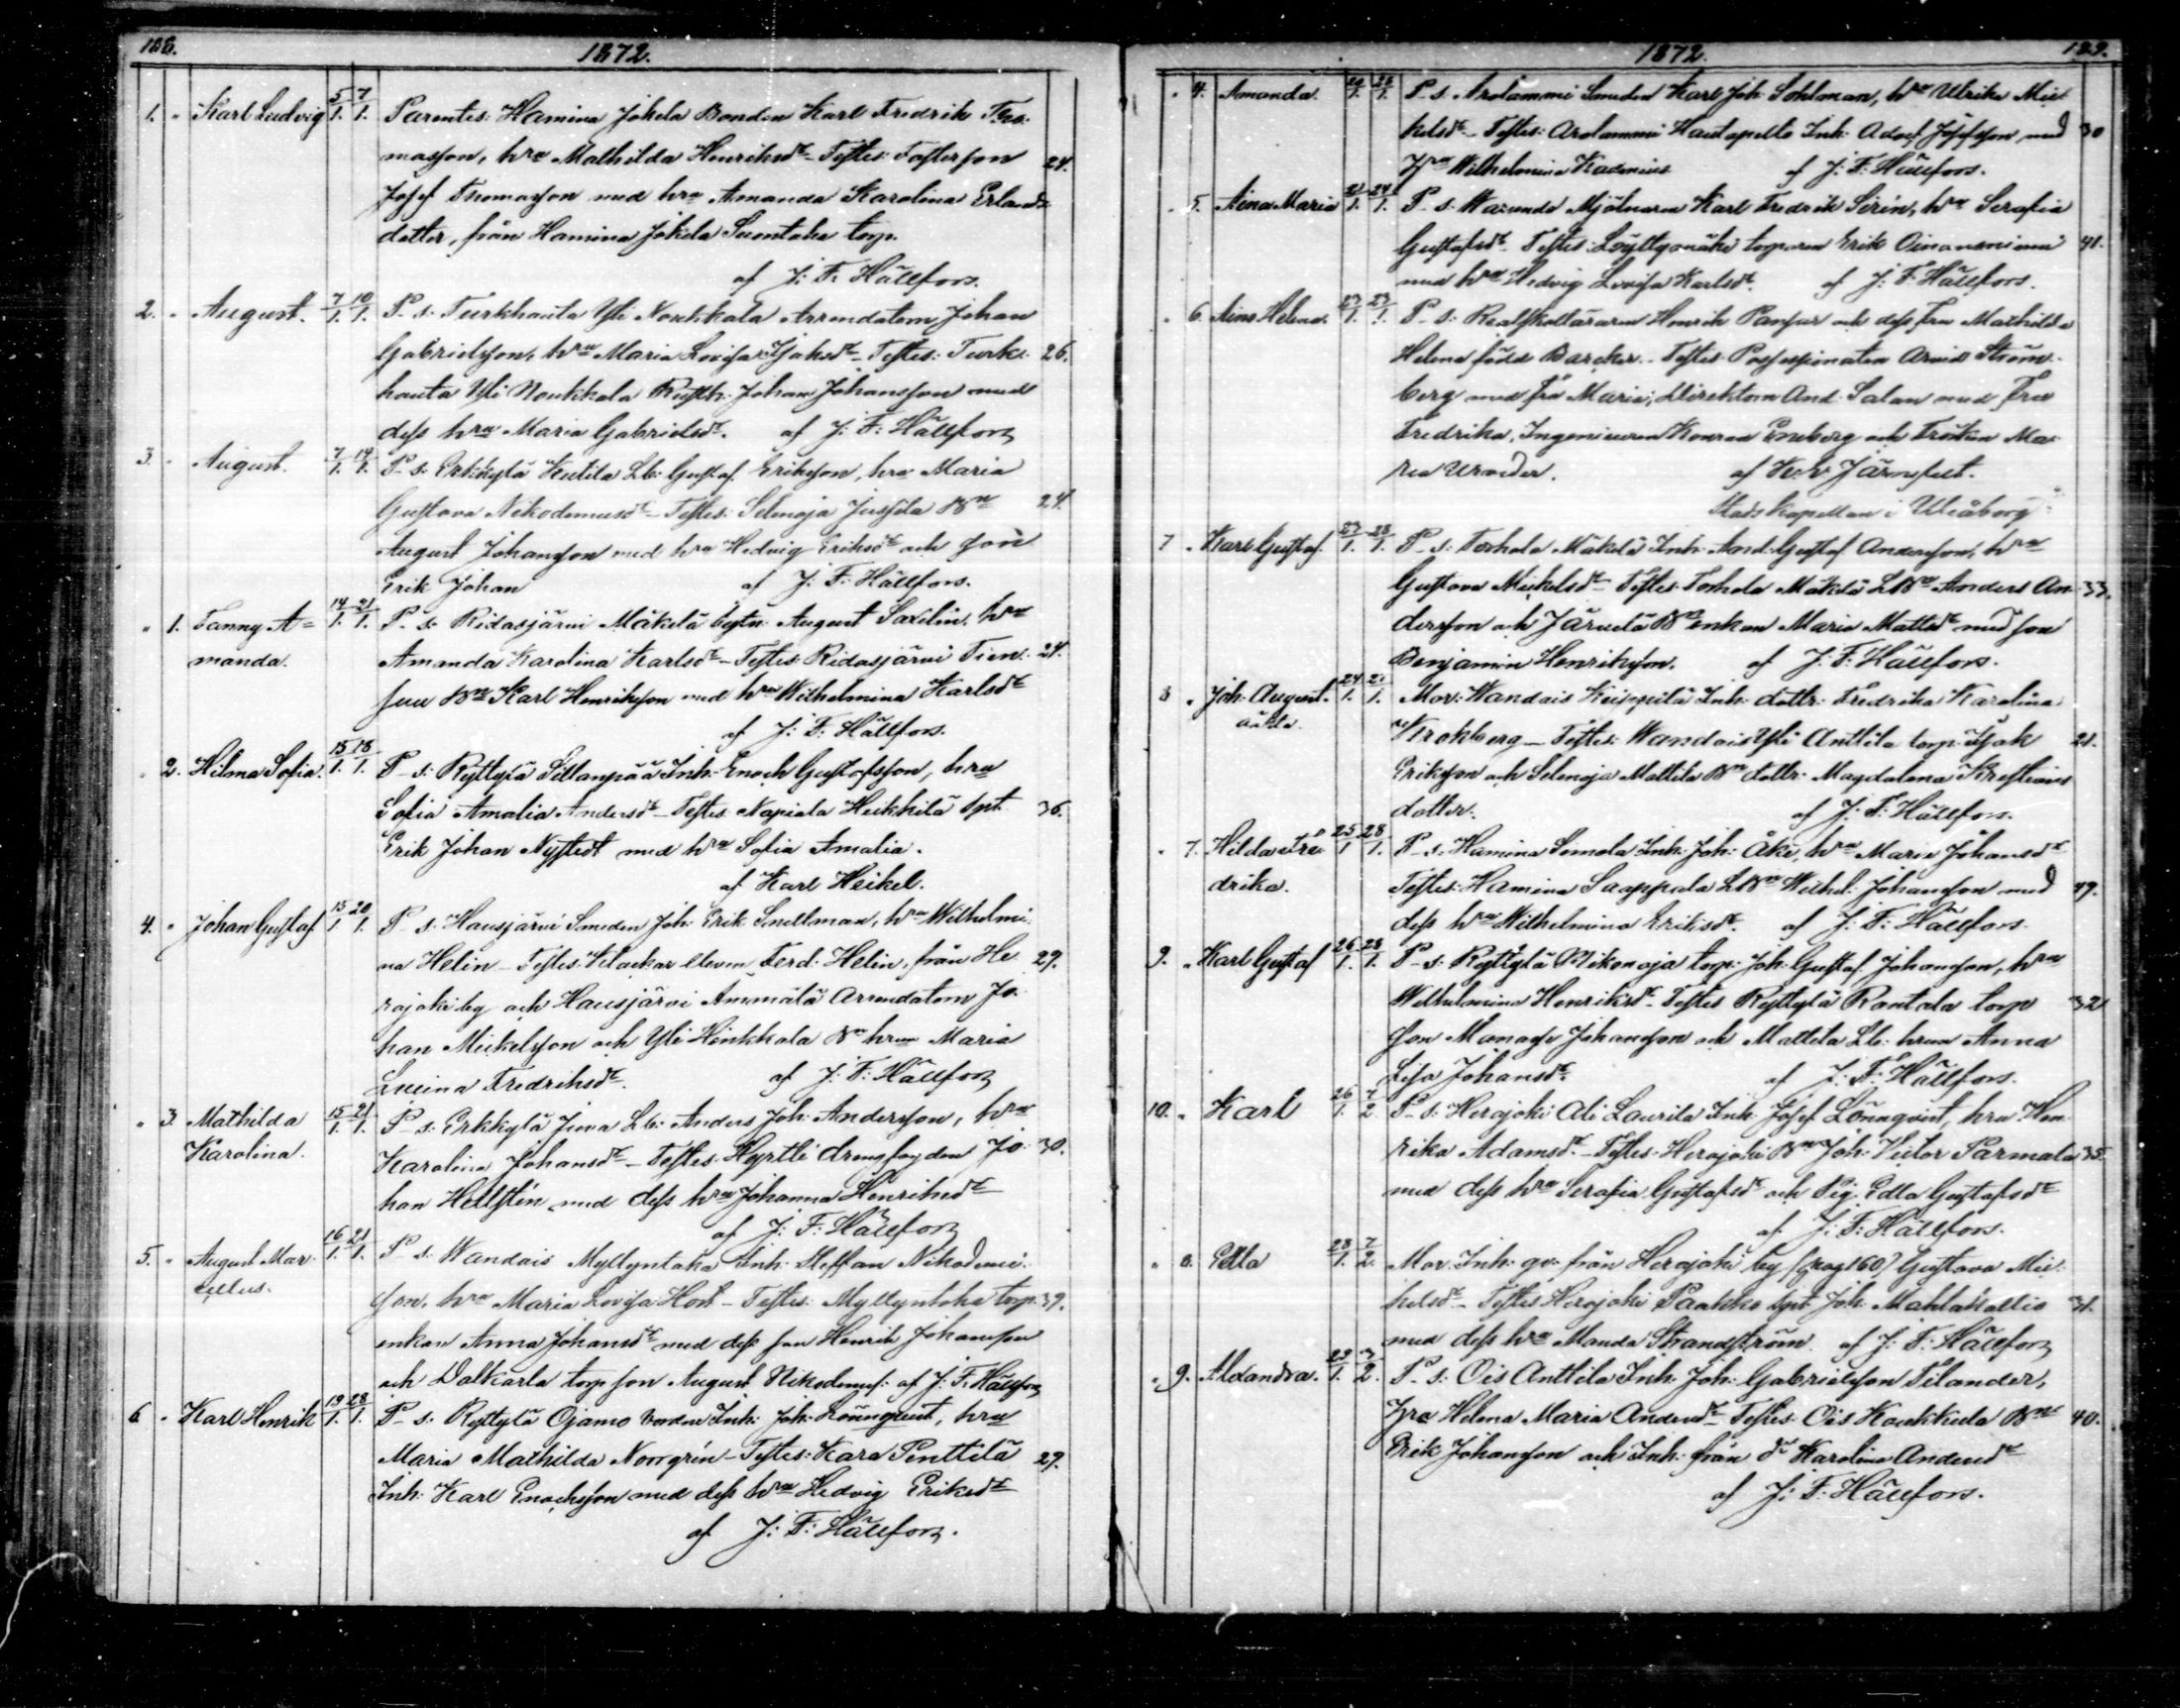 1872.
1. " Karl Ludvig 5/1. 7/1. Parentes: Hamina Jokela Bonden Karl Fredrik Tho-
masson, hru Mathilda Henriksdr - Testes: Fosterson 24.
Josef Thomasson med hru Amanda Karolina Erlands-
dotter, från Hamina Jokela Suontaka torp.
af J: F: Hällfors.
2. " August. 7/1. 10/1. P. s: Turkhauta Yli Noukkala Arrendatorn Johan
Gabrielsson, hru Maria Lovisa Isaksdr - Testes: Turk- 26.
hauta Yli Noukkala Rusth: Johan Johansson med
dess hru Maria Gabrielsdr. af J: F: Hällfors
3. " August. 7/1. 14/1. P. s: Erkkylä Kutila Lb: Gustaf Eriksson, hru Maria
Gustava Nikodemusdr - Testes: Selenoja Jussila Bn 24.
August Johansson med hru Hedvig Eriksdr och son
Erik Johan af J: F: Hällfors.
" 1. Fanny A= 14/1. 21/1. P. s: Ridasjärvi Mäkelä Bytn: August Saxelin, hru
manda. Amanda Karolina Karlsdr - Testes: Ridasjärvi Tien- 24.
suu Bn Karl Henriksson med hru Wilhelmina Karlsdr
af J: F: Hällfors.
" 2. Hilma Sofia. 15/1. 18/1. P. s: Ryttylä Sillanpää Inh: Enoch Gustafsson, hru
Sofia Amalia Andersdr - Testes: Napiala Heikkilä spt. 36.
Erik Johan Nystedt med hru Sofia Amalia.
af Karl Heikel.
4. " Johan Gustaf 15/1 20/1. P. s: Hausjärvi Smeden Joh: Erik Snellman, hru Wilhelmi-
na Helin - Testes: Klockar eleven Ferd: Helin, från He- 29.
rajoki by och Hausjärvi Ammälä Arrendatorn Jo-
han Mickelsson och Yli Hinkkala Bn hrun Maria
Lucina Fredriksdr. af J: F: Hällfors
" 3. Mathilda 15/1. 21/1. P. s: Erkkylä Juva Lb: Anders Joh: Andersson, hru
Karolina. Karolina Johansdr - Testes: Hyrtti drengfogden Jo- 30.
han Hellstén med dess hru Johanna Henriksdr
af J: F: Hällfors
5. " August Mar- 16/1. 21/1. P. s: Wandais Myllyntaka Inh: Steffan Nikodemi-
cellus. son, hru Maria Lovisa - Testes: Myllyntaka torp: 39.
enkan Anna Johansdr med dess son Henrik Johansson
och Dalkarla torp son August Nikodemus: af J: F: Hällfors
6. " Karl Henrik 19/1. 28/1. P. s: Ryttylä Ojamo Inh: Joh: Lönnqvist, hru
Maria Mathilda Norrgrén - Testes: Kara Penttilä 29.
Inh: Karl Enochsson med dess hru Hedvig Eriksdr
af J: F: Hällfors.
1872. 129.
" 4. Amanda. 20/1. 28/1. P. s: Arolammi Smeden Karl Joh: Sohlman, hru Ulrika Mic-
kelsdr - Testes: Arolammi Hautapelto Inh: Adolf Josefsson med 30
Hru Wilhelmina af J: F: Hällfors.
" 5. Aina Maria 21/1. 24/1. P. s: Mjölnaren Karl Fredrik Sirén, hru Serafia
Gustafsdr - Testes: torparen Erik 41.
med hru Hedvig Lovisa Karlsdr. af J: F: Hällfors.
" 6. Aino Helena. 23/1. 23/1. P. s: Henrik och dess Fru Mathilda
Helena född Barcker. - Testes: Possessionaten Arvid Ström-
berg med fru Maria, Direktorn And: Salan med Fru
Fredrika, Ingenieuren Konrad Eneberg och Fröken Ma-
ria. af Järnefelt.
Stadskapellan i Uleåborg
7. " Karl Gustaf. 23/1. 28/1. P. s: Torhola Mäkelä Inh: And: Gustaf Andersson, hru
Gustava Mickelsdr - Testes: Torhola Mäkelä LBn Anders An- 33.
dersson och Järvelä Bn enkan Maria Mattsdr med son
Benjamin Henriksson. af J: F: Hällfors.
8. " Joh: August. 24/1. 1. Mor: Wandais Inh: dottr: Fredrika Karolina
oäkta. Krokberg - Testes: Wandais Yli Anttila torp: Isak 21.
Eriksson och Selenoja Mattila Bn dottr: Magdalena Kristians
dotter. af J: F: Hällfors.
" 7. Hilda Fre- 25/1 28/1. P. s: Hamina Simola Inh: Joh: Åke, hru Maria Johansdr
drika. Testes: Hamina Saappala LBn Wilhel: Johansson med 49.
dess hru Wilhelmina Eriksdr. af J: F: Hällfors.
9. " Karl Gustaf 26/1. 28/1. P. s: Ryttylä Mikonoja torp: Joh: Gustaf Johansson, hru
Wilhelmina Henriksdr - Testes Ryttylä Rantala torp 32
son Manasse Johansson och Mattila Lb: hrun Anna
Lisa Johansdr. af J: F: Hällfors.
10. " Karl 26/1. 7/2 P. s: Herajoki Ali Laurila Inh: Josef Lönnqvist, hru Hen-
rika Adamsdr. - Testes: Herajoki Bn Joh: Victor Parmala 35
med dess hru Serafia Gustafsdr och Pig: Edla Gustafsdr
af J: F: Hällfors.
" 8. Edla 28/1. 7/2. Mor: Inh: qv: från Herajoki by (pag 160) Gustava Mic-
kelsdr - Testes Herajoki Paakko spt Joh: Mahlakallio 31.
med dess hru Manda Strandström. af J: F: Hällfors
" 9. Alexandra. 29/1. 3/2. P. s: Ois Anttila Inh: Joh: Gabrielsson Silander,
Hru Helena Maria Andersdr - Testes: Ois Koukkula Bn 40.
Erik Johansson och Inh: från do Karolina Andersdr
af J: F: Hällfors.